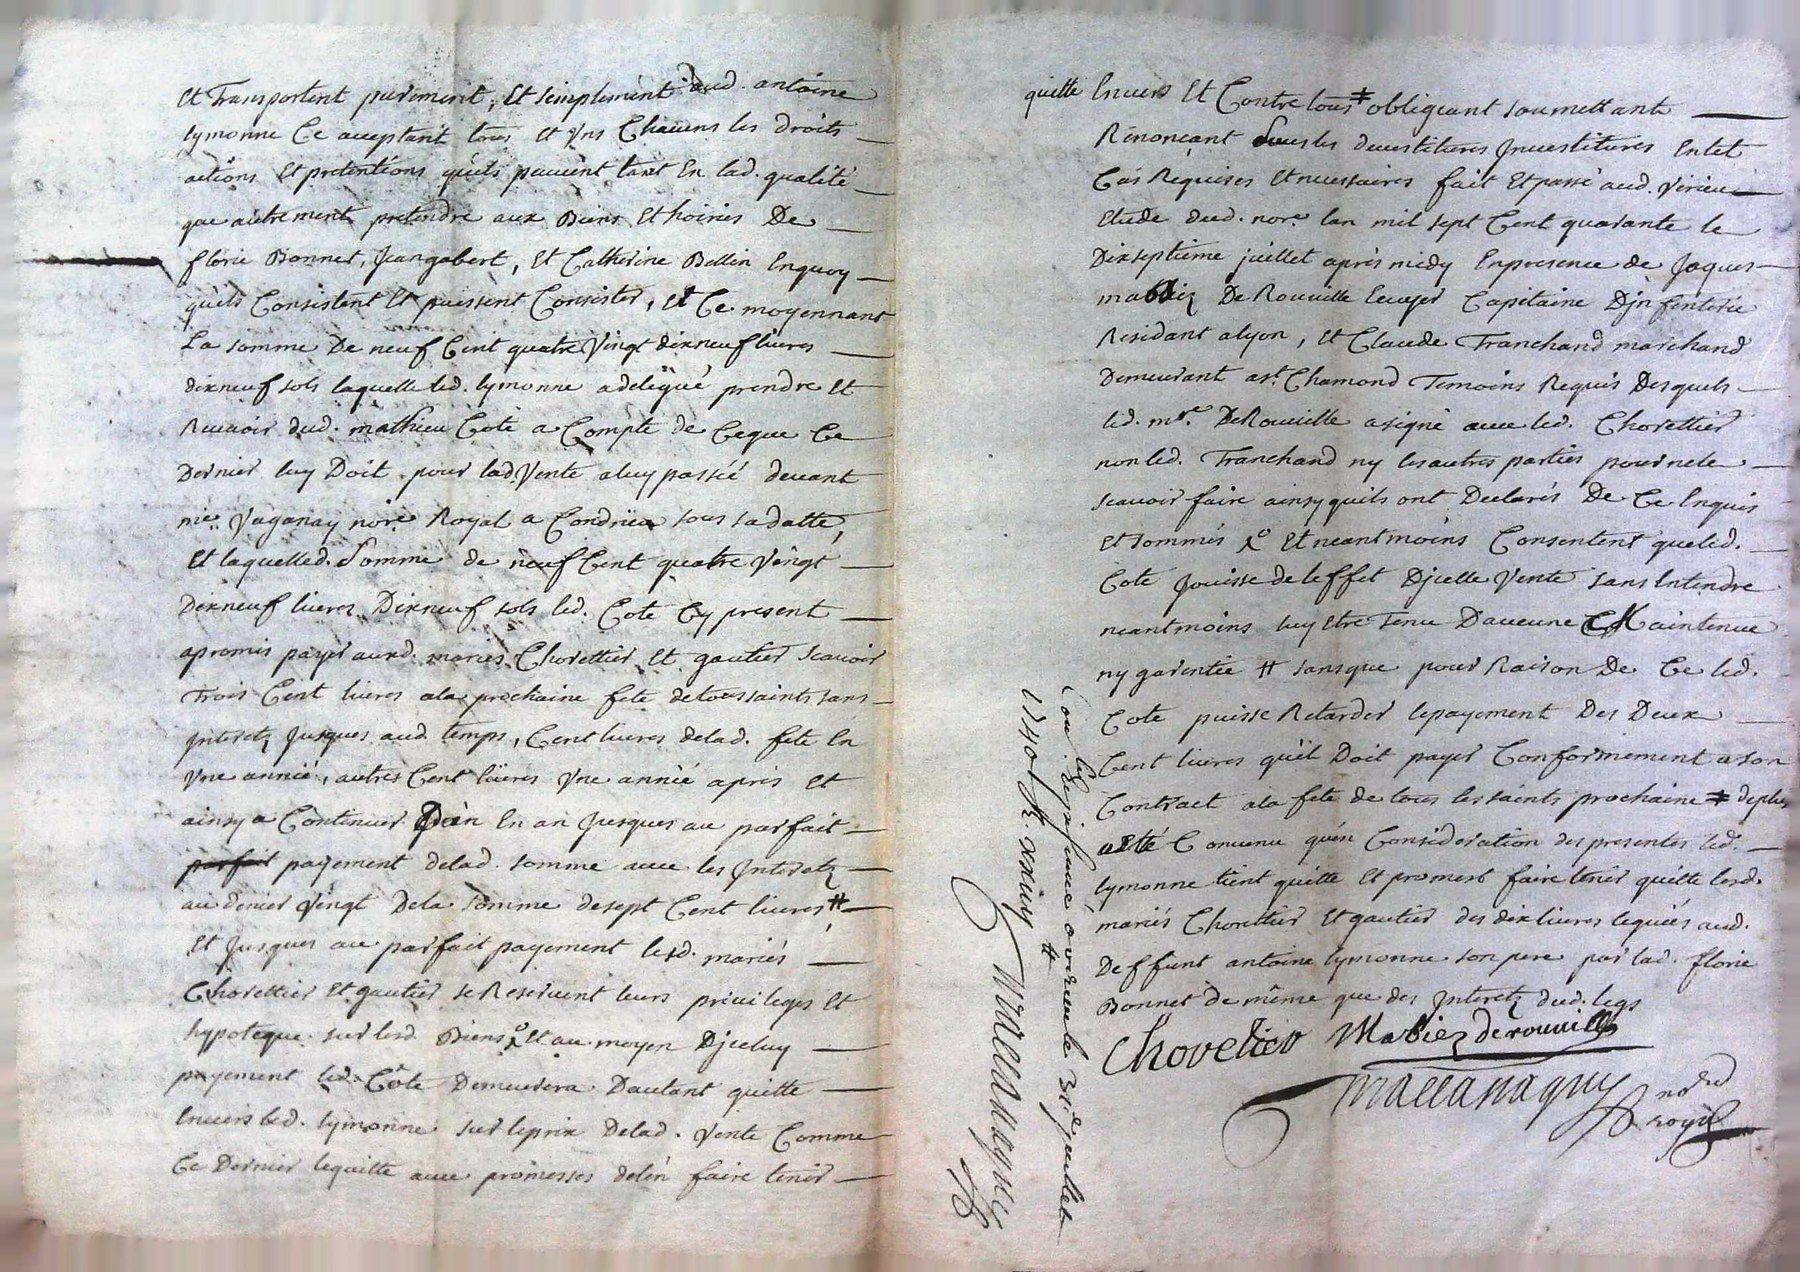 Et Transportent purement, Et simplement aud. antoine
lymonne Ce acceptant tous et Uns Chacuns les droits
actions Et pretentions quéls peuvent tant En lad. qualité
que autrement pretendre aux Biens Et hoiries De
florie Bonnet, Jean gabert, Et Catherine Bellin Enquoy
quéls Consistent Et puissent Consister, Et Ce moyennant
La somme De neuf Cent quatre Vingt dixneuf livres
dixneuf sols laquelle led. lymonne a delegué prendre Et
Recevoir dud. mathieu Cote a Compte de Ceque Ce
Dernier luy Doit pour lad. Vente a luy passéé devant
me. Vaganay nore Royal a Condrieu sous sa datte,
Et laquelled. Somme de neuf Cent quatre Vingt
Dixneuf livres Dixneuf sols led. Cote Cy present
apromis payer auxd. mariés Chorettier Et gautier Scavoir
Trois Cent livres ala prochaine fete de toussaints sans
Interetz Jusques aud. temps, Cent livres delad. fete En
Une annéé, autres Cent livres Une annéé aprés Et
ainsy a Continuer D'an En an Jusques au parfait
payement delad. somme avec les Interetz
au denier Vingt De la somme desept Cent livres #
Et Jusques au parfait payement lesd. mariés
Chorettier Et gautier se Reservent leurs privileges Et
hypoteque sur lesd. Biens Et au moyen Djceluy
payement led. Côte Demeurera Dautant quitte
Envers led. lymonne sur leprix Delad. Vente Comme
Ce Dernier lequitte avec promesses delén faire tenir
quitte Envers Et Contre tous # obligeant soumettant
Rénonçant Sous les devestitures Jnvestitures Entel
Cas Requises Et necessaires fait Et passé aud. Virieu
Etude dud. nore. lan mil sept Cent quarante le
Dixseptième juillet aprés midy Enpresence de Jaques
mabiez De Rouville Ecuyer Capitaine Djnfenterie
Residant alyon, Et Claude Tranchand marchand
Demeurant a st. Chamond Temoins Requis Desquels
led. mre. De Rouville a signé avec led. Chorettier
non led. Tranchand ny les autres parties pour ne le
scavoir faire ainsy quils ont Declarés De Ce Enquis
Et sommés Et neantmoins Consentent queled.
Cote Jouisse de leffet Djcelle Vente sans Entendre
neantmoins luy Etre Tenu Daucune Maintenue
ny garentie # sansque pour Raison De Ce led.
Cote puisse Retarder lepayement Des Deux
Cent livres quél Doit payer Conformement a son
Contract ala fete de tous les saints prochaine # deplus
a Eté Convenu quén Consideration des presentes led.
lymonne tient quitte Et promest faire tenir quitte lesd.
mariés Chorettier Et gautier des dix livres leguéés aud.
Deffunt antoine lymonne son pere par lad. florie
Bonnet De même que des Interetz dud. legs
Chovetier Mabiez de rouville
Mallanaguy
no
royal
1740